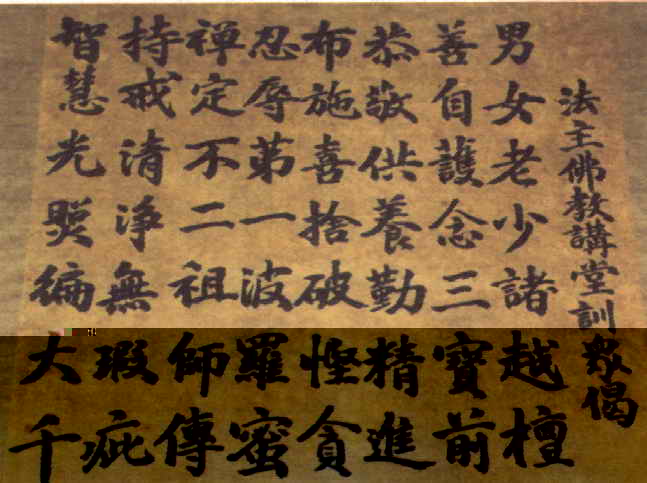 法主佛教講堂訓眾偈
男女老少諸越檀
善自護念三寶前
恭敬供養勤精進
布施喜捨破慳貪
忍辱苐一波羅蜜
禅定不二祖師傳
持戒清淨無瑕疵
智慧光煚徧大千